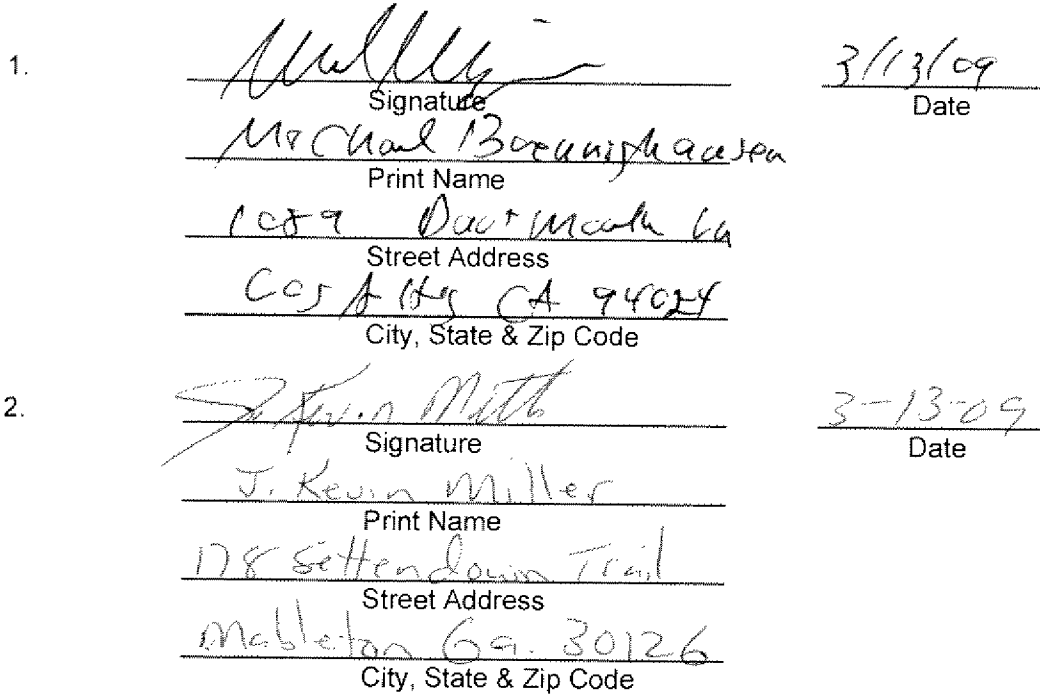 1. 3/13/09
Signature Date
Michael Boennighausen
Print Name
1089 Dartmouth Ln
Street Address
Los Altos CA 94024
City, State & Zip Code
2. J. Kevin Miller 3-13-09
Signature Date
J. Kevin Miller
Print Name
178 Settendown Trail
Street Address
Mableton Ga. 30126
City, State & Zip Code